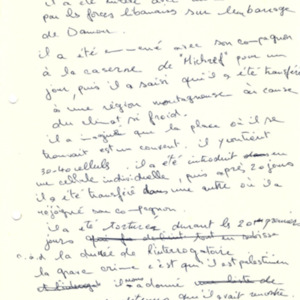 il a été arrêté avec un
par les forces libanaises sur l'embarcage
de Damour.
il a été emmené avec son compagnon
à la caserne de "Michref" pour un
jour, puis il a saisi qu'il a été transféré
à une région montagneuse au cause
du climat si froid.
il a imaginé que la place où il se
trouvait est un couvent. il y contient
30-40 cellules. il a été introduit dans
une cellule individuelle, puis après 20 jours
il a été transféré dans une autre où il a
rejoigné son compagnon.
il a été torturé durant les 20 premiers
jours
c.à.d la durée de l'interrogatoire
la grave crime c'est qu'il est palestinien
il a donné une liste de
qu'il avait